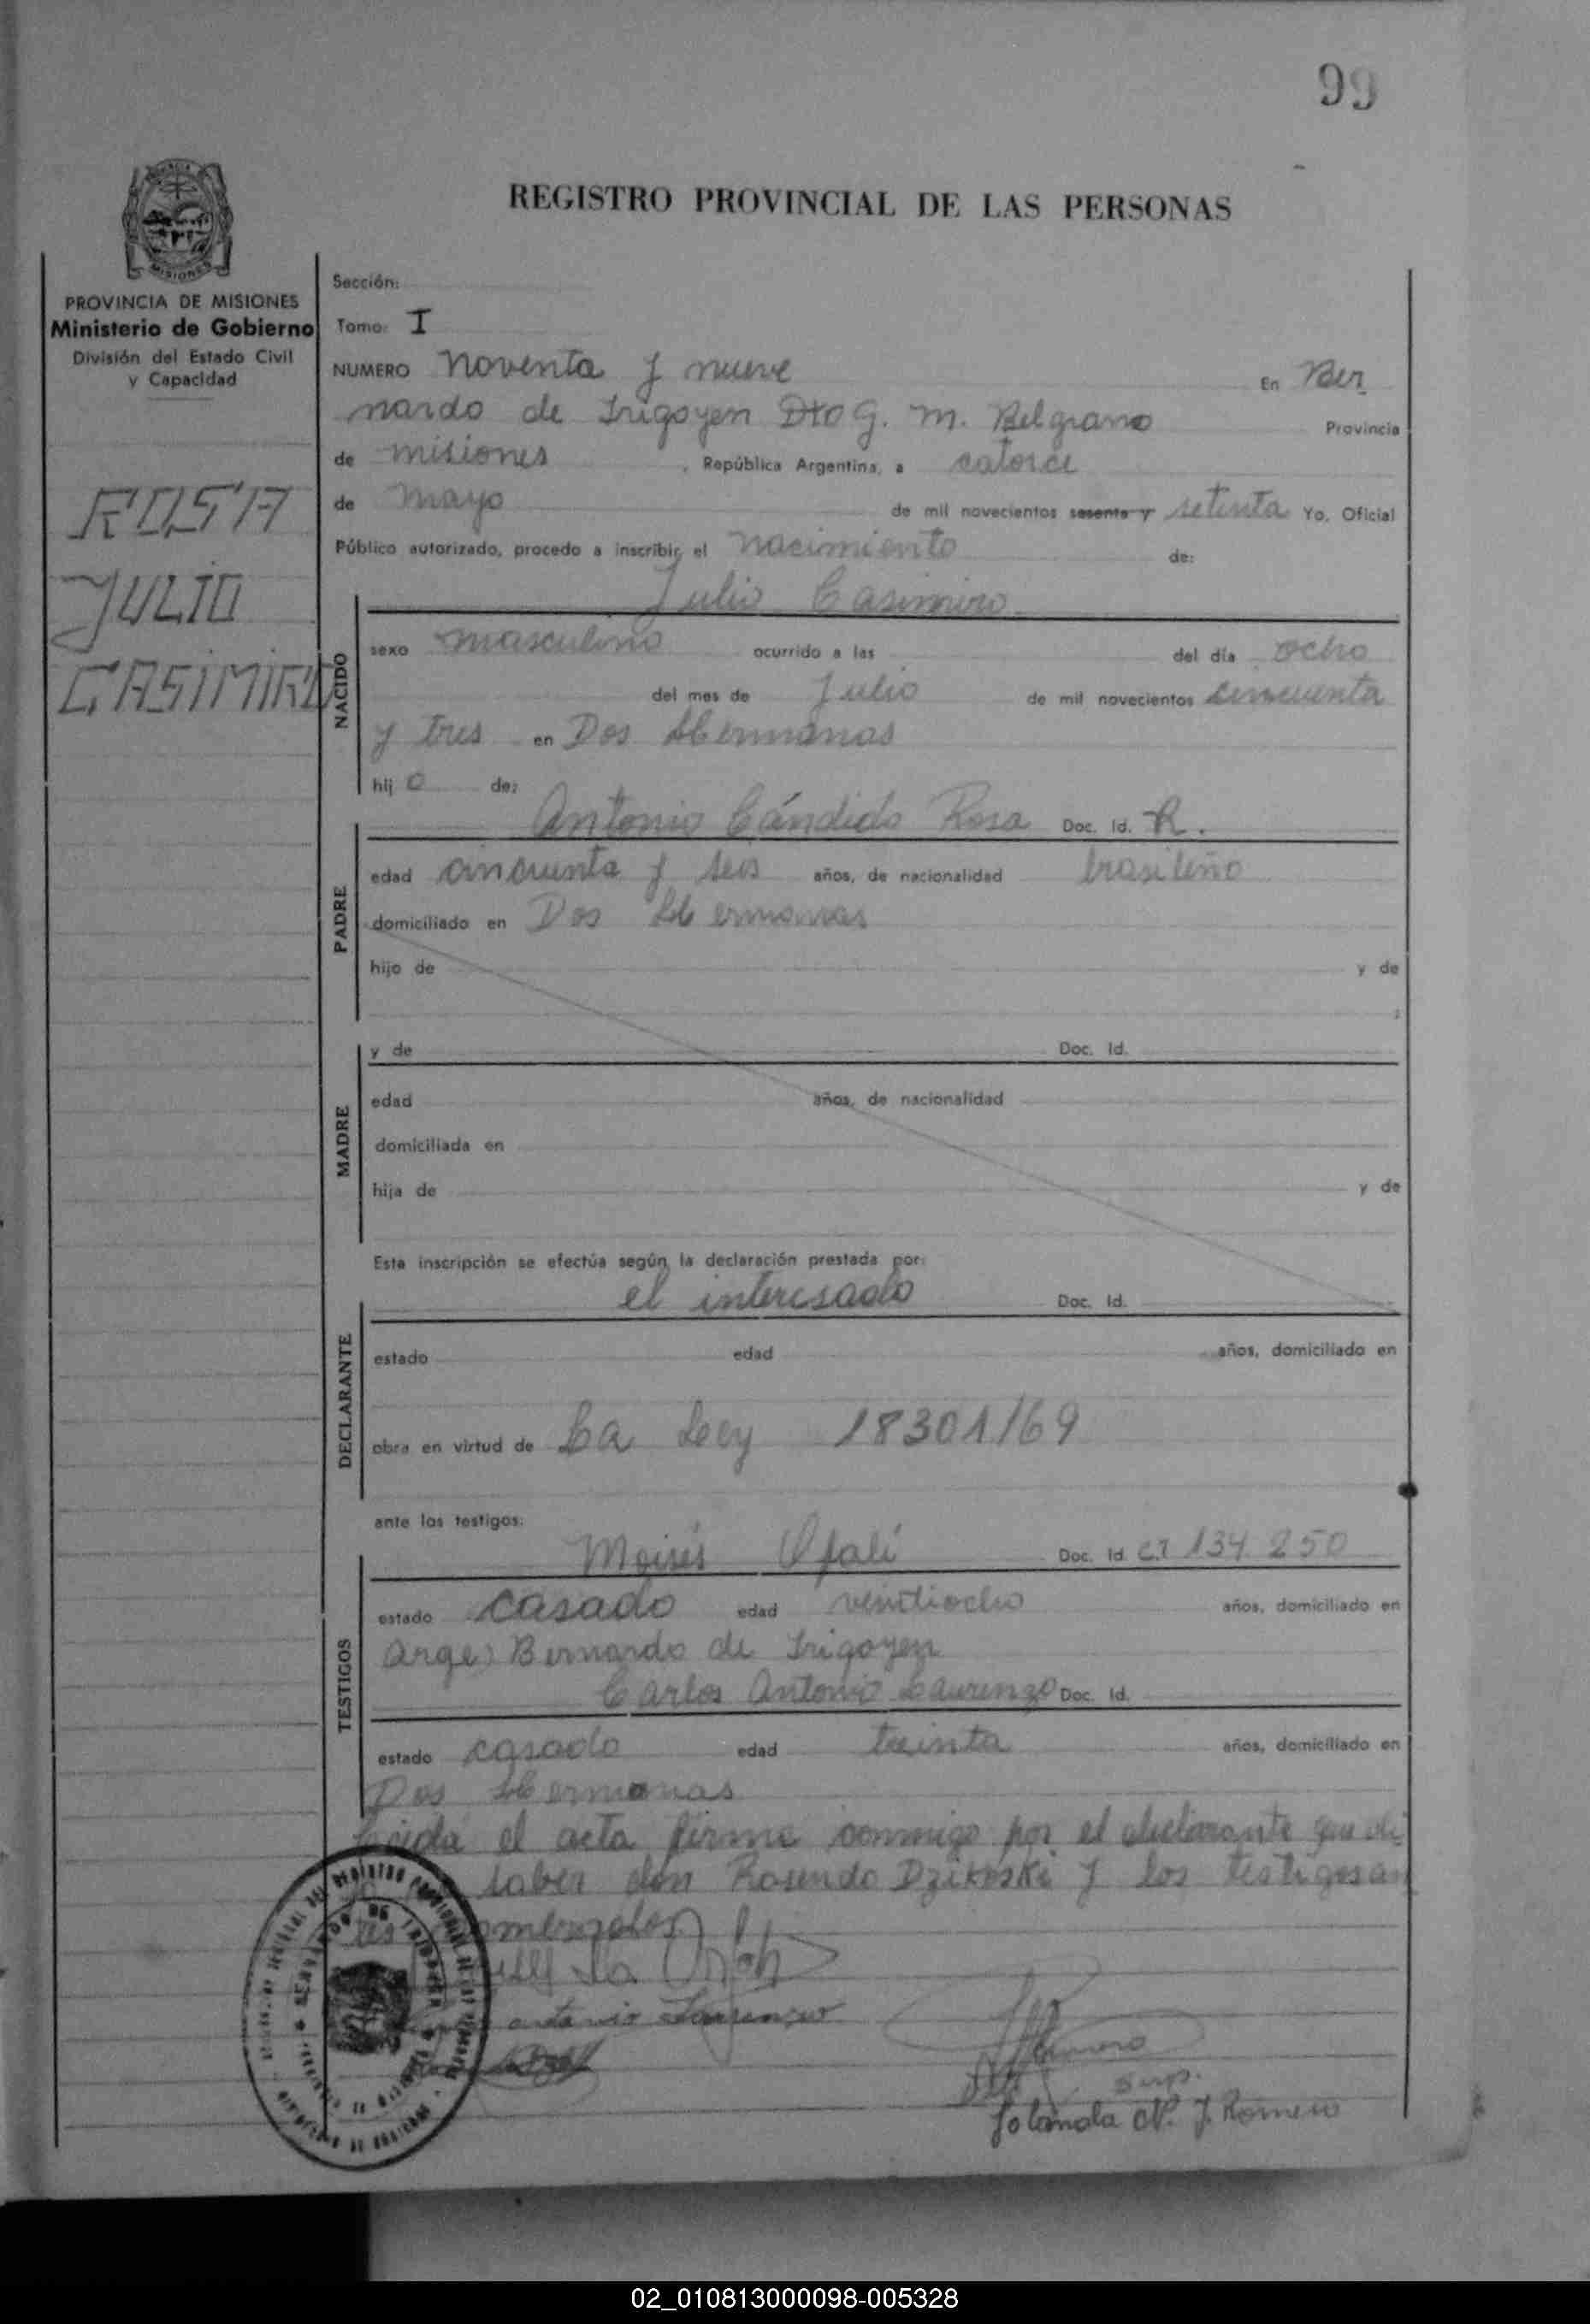 99
REGISTRO PROVINCIAL DE LAS PERSONAS
MISIONES
PROVINCIA DE MISIONES
Ministerio de Gobierno
División del Estado Civil
y Capacidad
ROSA
JULIO
CASIMIRO
Sección:
Tomo: I
NUMERO Noventa y nueve En Ber
nardo de Irigoyen Dto G. M. Belgrano Provincia
de misiones , República Argentina, a catorce
de mayo de mil novecientos sesenta y setenta Yo, Oficial
Público autorizado, procedo a inscribir el nacimiento de:
Julio Casimiro
NACIDO
sexo masculino ocurrido a las del día ocho
del mes de Julio de mil novecientos cincuenta
y tres en Dos Hermanas
hij o de:
Antonio Cándido Rosa Doc. Id. R.
PADRE
edad cincuenta y seis años, de nacionalidad brasileño
domiciliado en Dos Hermanas
hijo de y de
;
MADRE
y de Doc. Id.
edad años, de nacionalidad
domiciliada en
hija de y de
Esta inscripción se efectúa según la declaración prestada por:
el interesado Doc. Id.
DECLARANTE
estado edad años, domiciliado en
obra en virtud de La Ley 18301/69
ante los testigos:
TESTIGOS
Moisés Doc. Id. C.I 134.250
estado casado edad veintiocho años, domiciliado en
Bernardo de Irigoyen
Carlos Antonio Laurenzo Doc. Id.
estado casado edad treinta años, domiciliado en
Dos Hermanas
el acta firma conmigo por el declarante que
saber don Rosendo Dzikoski y los testigos an
antonio
Romero
Iolanda N. J. Romero
02_010813000098-005328